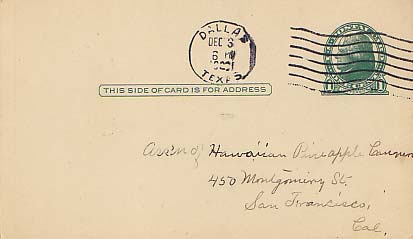 DALLAS
DEC 3
6 PM
TEXAS
THIS SIDE OF CARD IS FOR ADDRESS
Assn of Hawaiian Pineapple Canners
450 Montgomery St.
San Francisco,
Cal.